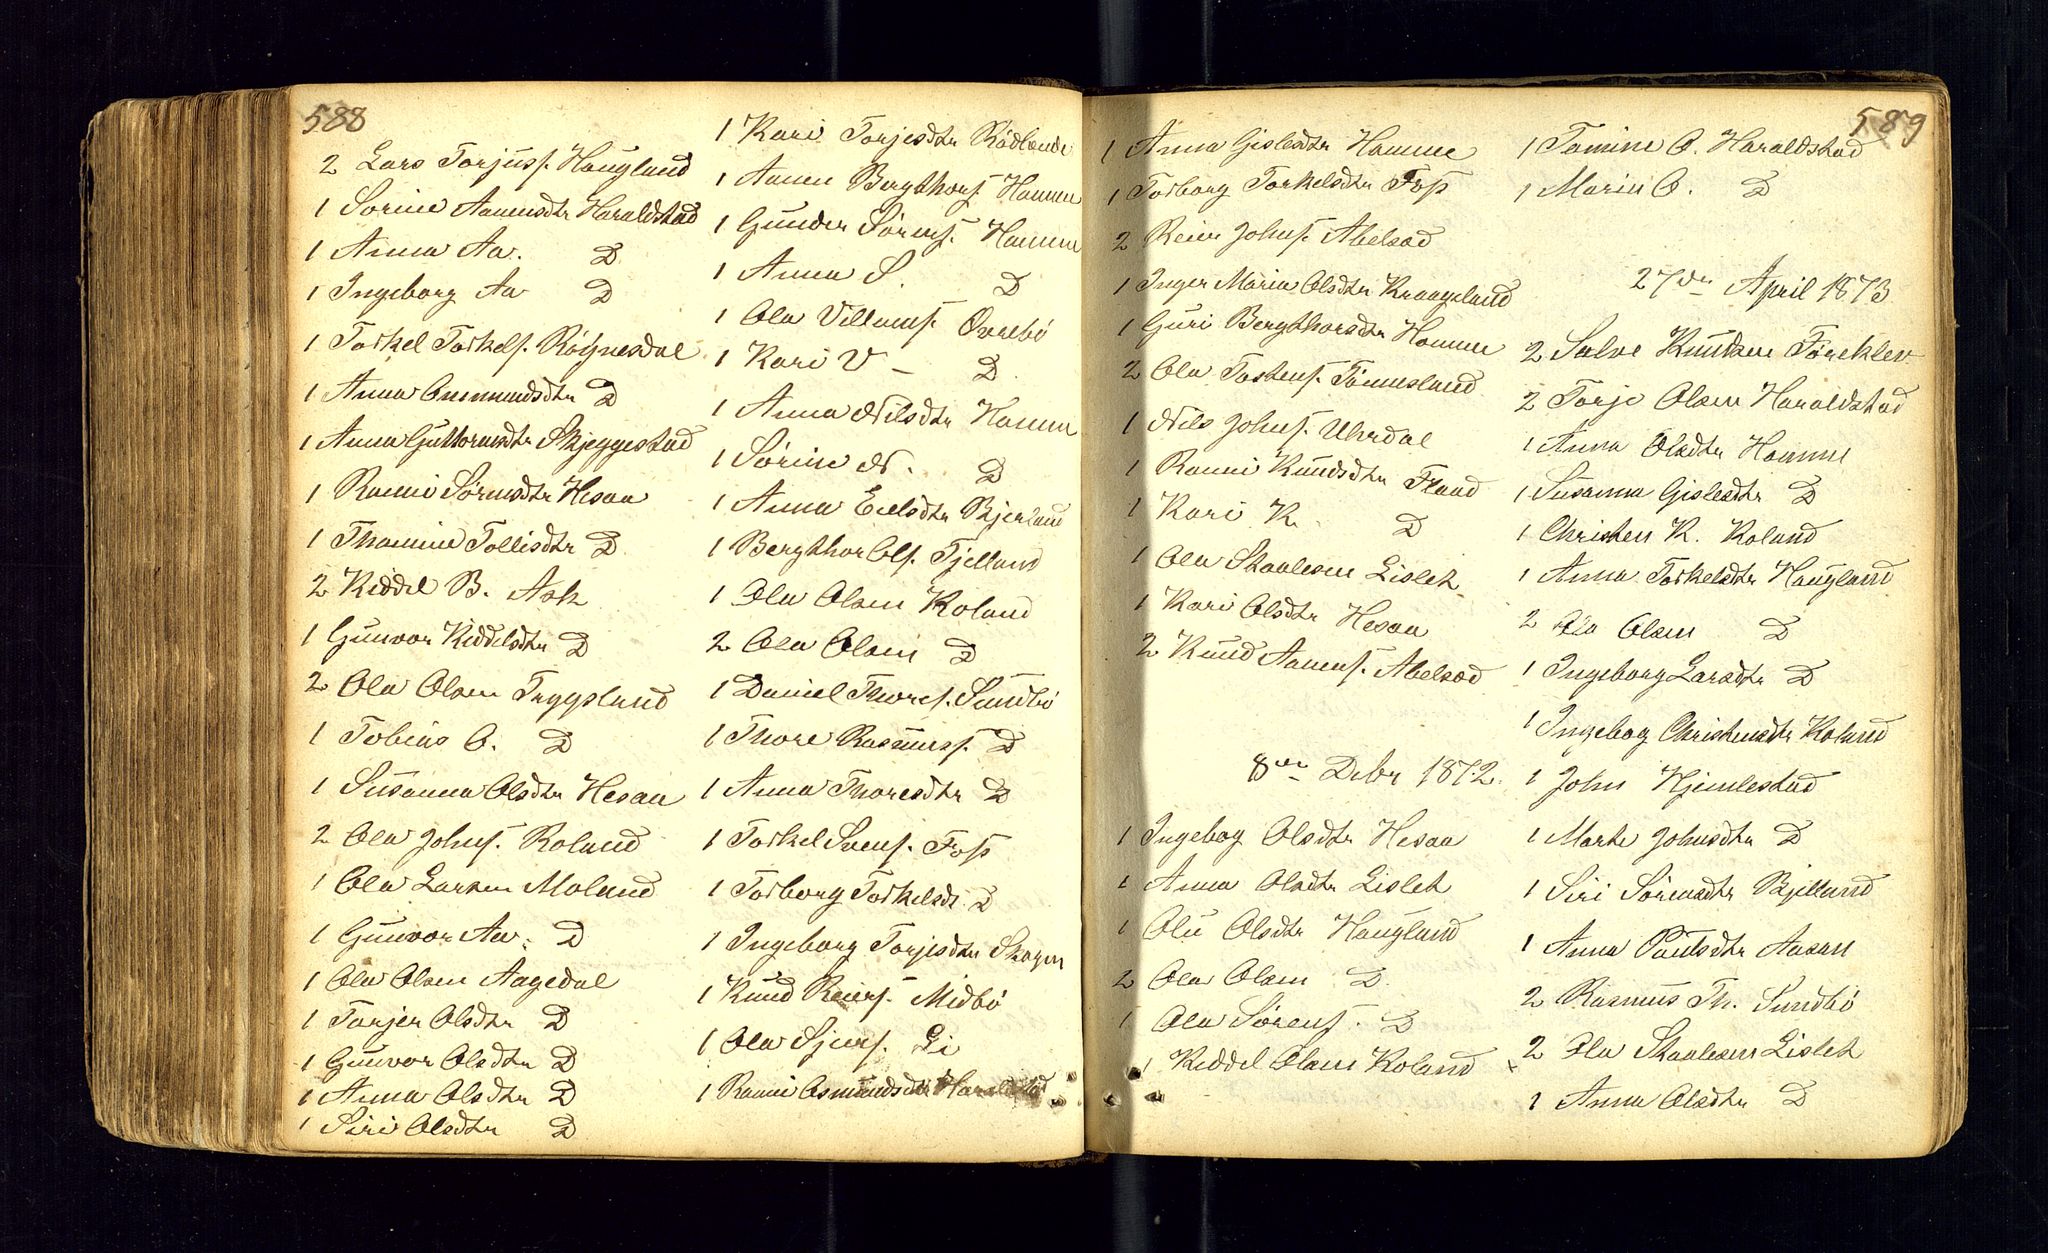 588
2 Lars Torjuss. Haugland
1 Sørine Aanensdtr Haraldstad
1 Anna Aa. D
1 Ingeborg Aa D
1 Torkel Torkels. Røynesdal
1 Anna Ommundsdtr D
1 Anna Guttormsdtr Skjeggestad
1 Ranni Sørensdtr Hesaa
1 Thomine Tollisdtr D
2 Kiddel B. Ask
1 Gunvor Kiddelsdtr D
2 Ola Olsen Tryggsland
1 Tobias O. D
1 Susanna Olsdtr Hesaa
2 Ola Johns. Roland
1 Ola Larsen Moland
1 Gunvor Aa. D
1 Ola Olsen Aagedal
1 Torjer Olsdtr D
1 Gunvor Olsdtr D
1 Anna Olsdtr D
1 Siri Olsdtr D
1 Kari Torjesdtr Rødlende
1 Aanen Bergthors. Homme
1 Gunder Sørens. Homme
1 Anna S. D
1 Ola Villums. Øvrebø
1 Kari V – D
1 Anna Nilsdtr Homme
1 Sørine N. D
1 Anna Eilsdtr Bjerland
1 Bergthor Ols. Fjelland
1 Ola Olsen Roland
2 Ola Olsen D
1 Daniel Thores. Sundbø
1 Thore Rasmuss. D
1 Anna Thoresdtr D
1 Torkel Svens. Foss
1 Torborg Torkelsdt. D
1 Ingeborg Torjesdtr Skogen
1 Knud Reiers. Midbø
1 Ola Sjurs. Li
1 Ranni Osmundsdtr Haraldstad
589
1 Anna Gislesdtr Homme
1 Torborg Torkelsdtr Foss
2 Reier Johns. Abelsød
1 Inger Maria Olsdtr Kraageland
1 Guri Bergthorsdtr Homme
2 Ola Tostens. Tønnesland
1 Nils Johns. Uhrdal
1 Ranni Knudsdtr Flaad
1 Kari K. D
1 Ola Skaalesen Lislek
1 Kari Olsdtr Hesaa
2 Knud Aanens. Abelsød
8de Debr 1872.
1 Ingebog Olsdtr Hesaa
1 Anna Olsdtr Lislek
1 Olu Olsdtr Haugland
2 Ola Olsen D.
1 Ola Sørens. D
1 Kiddel Olsen Roland
1 Tomine O. Haraldstad
1 Marin O. D
27de April 1873
2 Salve Knudsen Føreklev
2 Torje Olsen Haraldstad
1 Anna Olsdtr Homme
1 Susanna Gislesdtr D
1 Christen K. Roland
1 Anna Torkelsdtr Haugland
2 Ola Olsen D
1 Ingeborg Larsdtr D
1 Ingebog Christensdtr Roland
1 John Hjemlestad
1 Marte Johnsdtr D
1 Siri Sørensdtr Bjelland
1 Anna Paulsdtr Aasan
2 Rasmus Th. Sundbø
2 Ola Skaalesen Lislek
1 Anna Olsdtr D